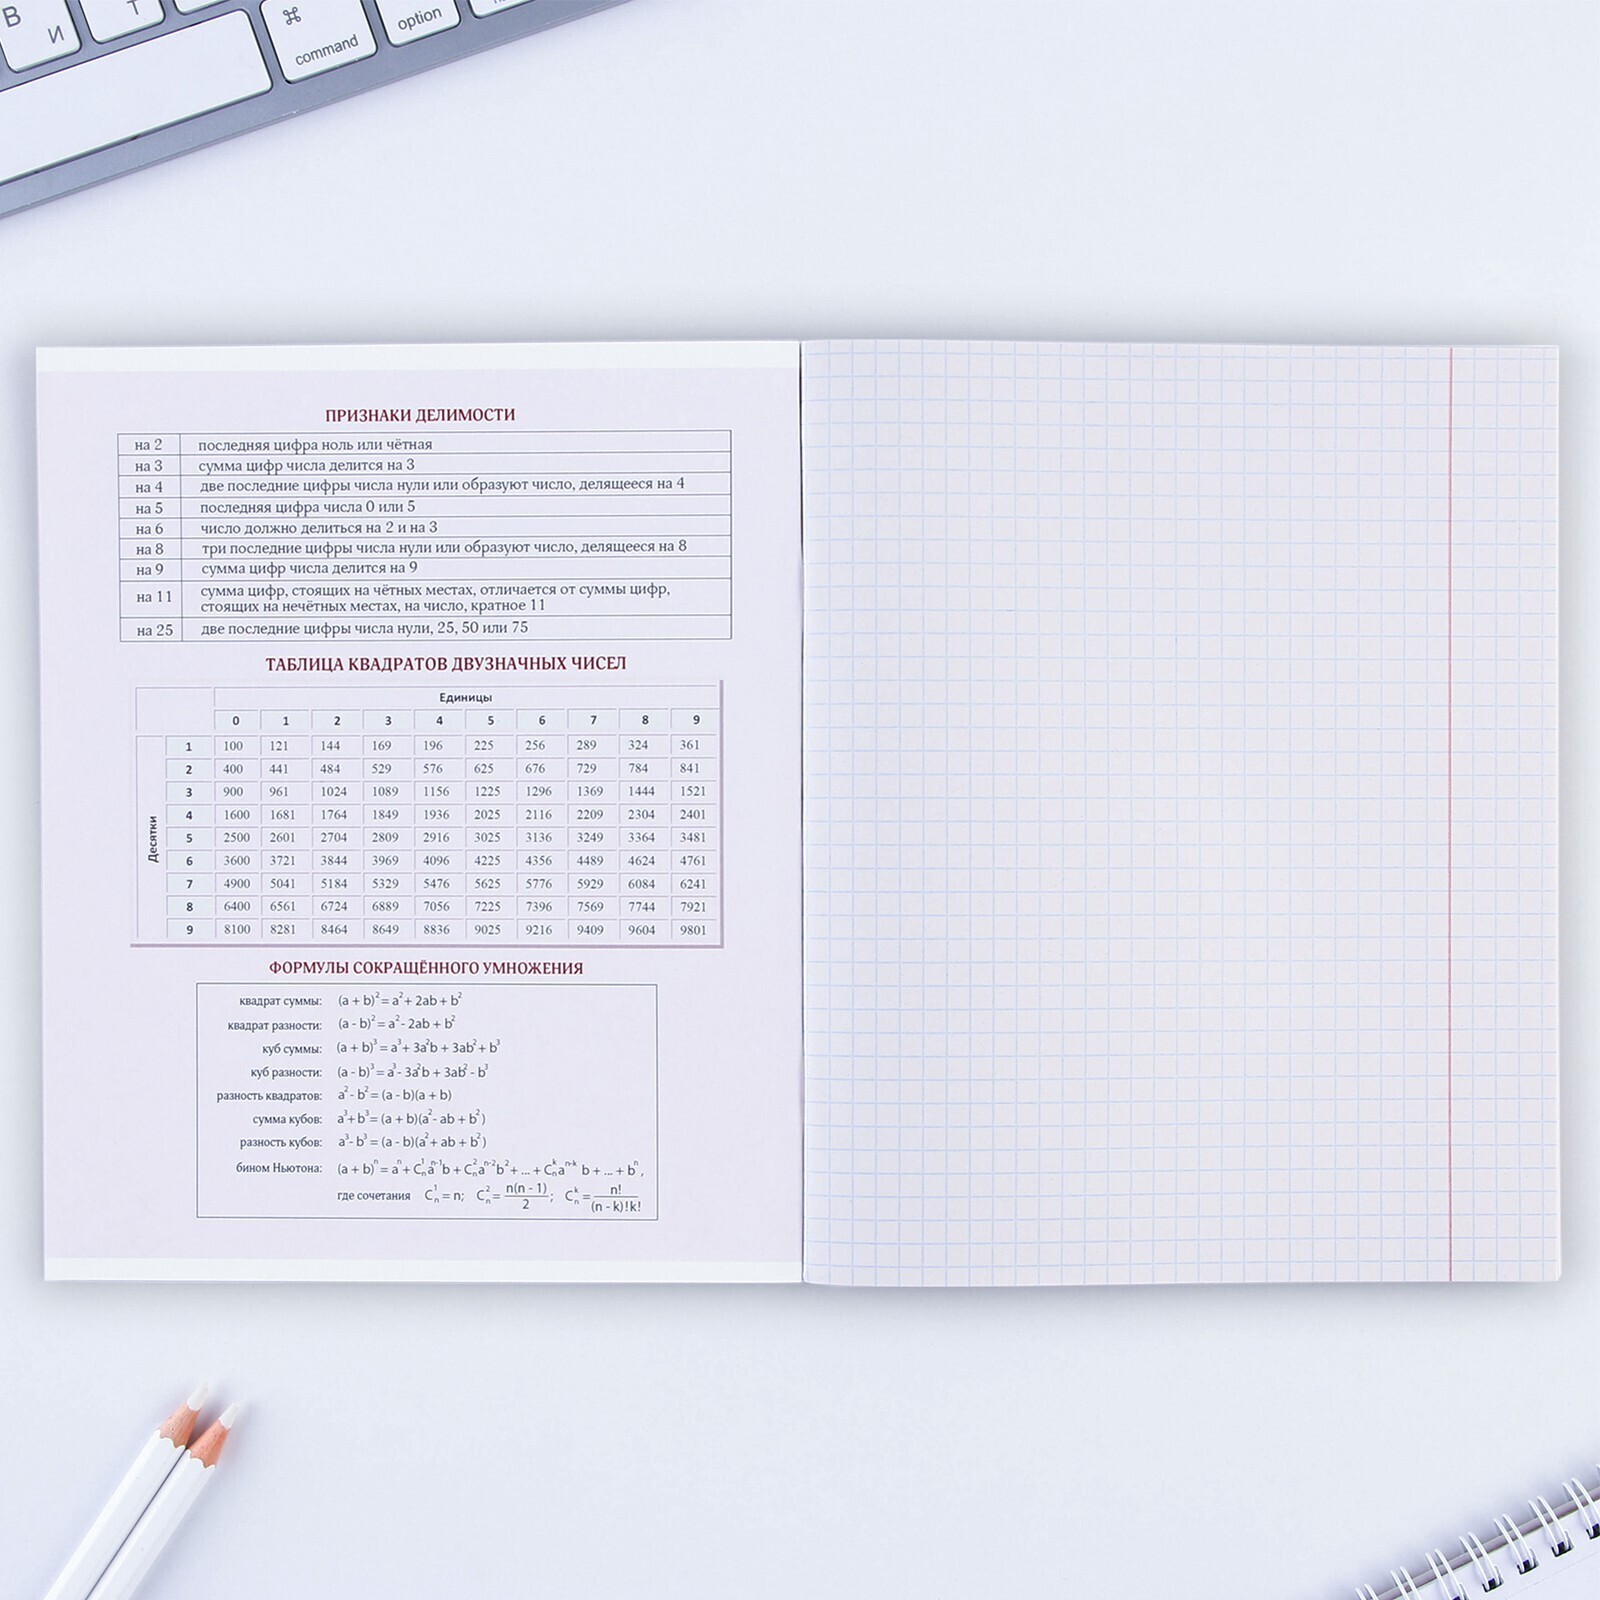 В
И
Т
⌘
command
option
ПРИЗНАКИ ДЕЛИМОСТИ
на 2 последняя цифра ноль или чётная
на 3 сумма цифр числа делится на 3
на 4 две последние цифры числа нули или образуют число, делящееся на 4
на 5 последняя цифра числа 0 или 5
на 6 число должно делиться на 2 и на 3
на 8 три последние цифры числа нули или образуют число, делящееся на 8
на 9 сумма цифр числа делится на 9
на 11 сумма цифр, стоящих на чётных местах, отличается от суммы цифр,
стоящих на нечётных местах, на число, кратное 11
на 25 две последние цифры числа нули, 25, 50 или 75
ТАБЛИЦА КВАДРАТОВ ДВУЗНАЧНЫХ ЧИСЕЛ
Единицы
0 1 2 3 4 5 6 7 8 9
Десятки
1 100 121 144 169 196 225 256 289 324 361
2 400 441 484 529 576 625 676 729 784 841
3 900 961 1024 1089 1156 1225 1296 1369 1444 1521
4 1600 1681 1764 1849 1936 2025 2116 2209 2304 2401
5 2500 2601 2704 2809 2916 3025 3136 3249 3364 3481
6 3600 3721 3844 3969 4096 4225 4356 4489 4624 4761
7 4900 5041 5184 5329 5476 5625 5776 5929 6084 6241
8 6400 6561 6724 6889 7056 7225 7396 7569 7744 7921
9 8100 8281 8464 8649 8836 9025 9216 9409 9604 9801
ФОРМУЛЫ СОКРАЩЁННОГО УМНОЖЕНИЯ
квадрат суммы: (a + b)² = a² + 2ab + b²
квадрат разности: (a - b)² = a² - 2ab + b²
куб суммы: (a + b)³ = a³ + 3a²b + 3ab² + b³
куб разности: (a - b)³ = a³ - 3a²b + 3ab² - b³
разность квадратов: a² - b² = (a - b)(a + b)
сумма кубов: a³ + b³ = (a + b)(a² - ab + b²)
разность кубов: a³ - b³ = (a - b)(a² + ab + b²)
бином Ньютона: (a + b)ⁿ = aⁿ + C¹ₙaⁿ⁻¹b + C²ₙaⁿ⁻²b² + ... + Cᵏₙaⁿ⁻ᵏ b + ... + bⁿ,
где сочетания C¹ₙ = n; C²ₙ = n(n - 1)/2; Cᵏₙ = n!/(n - k)!k!